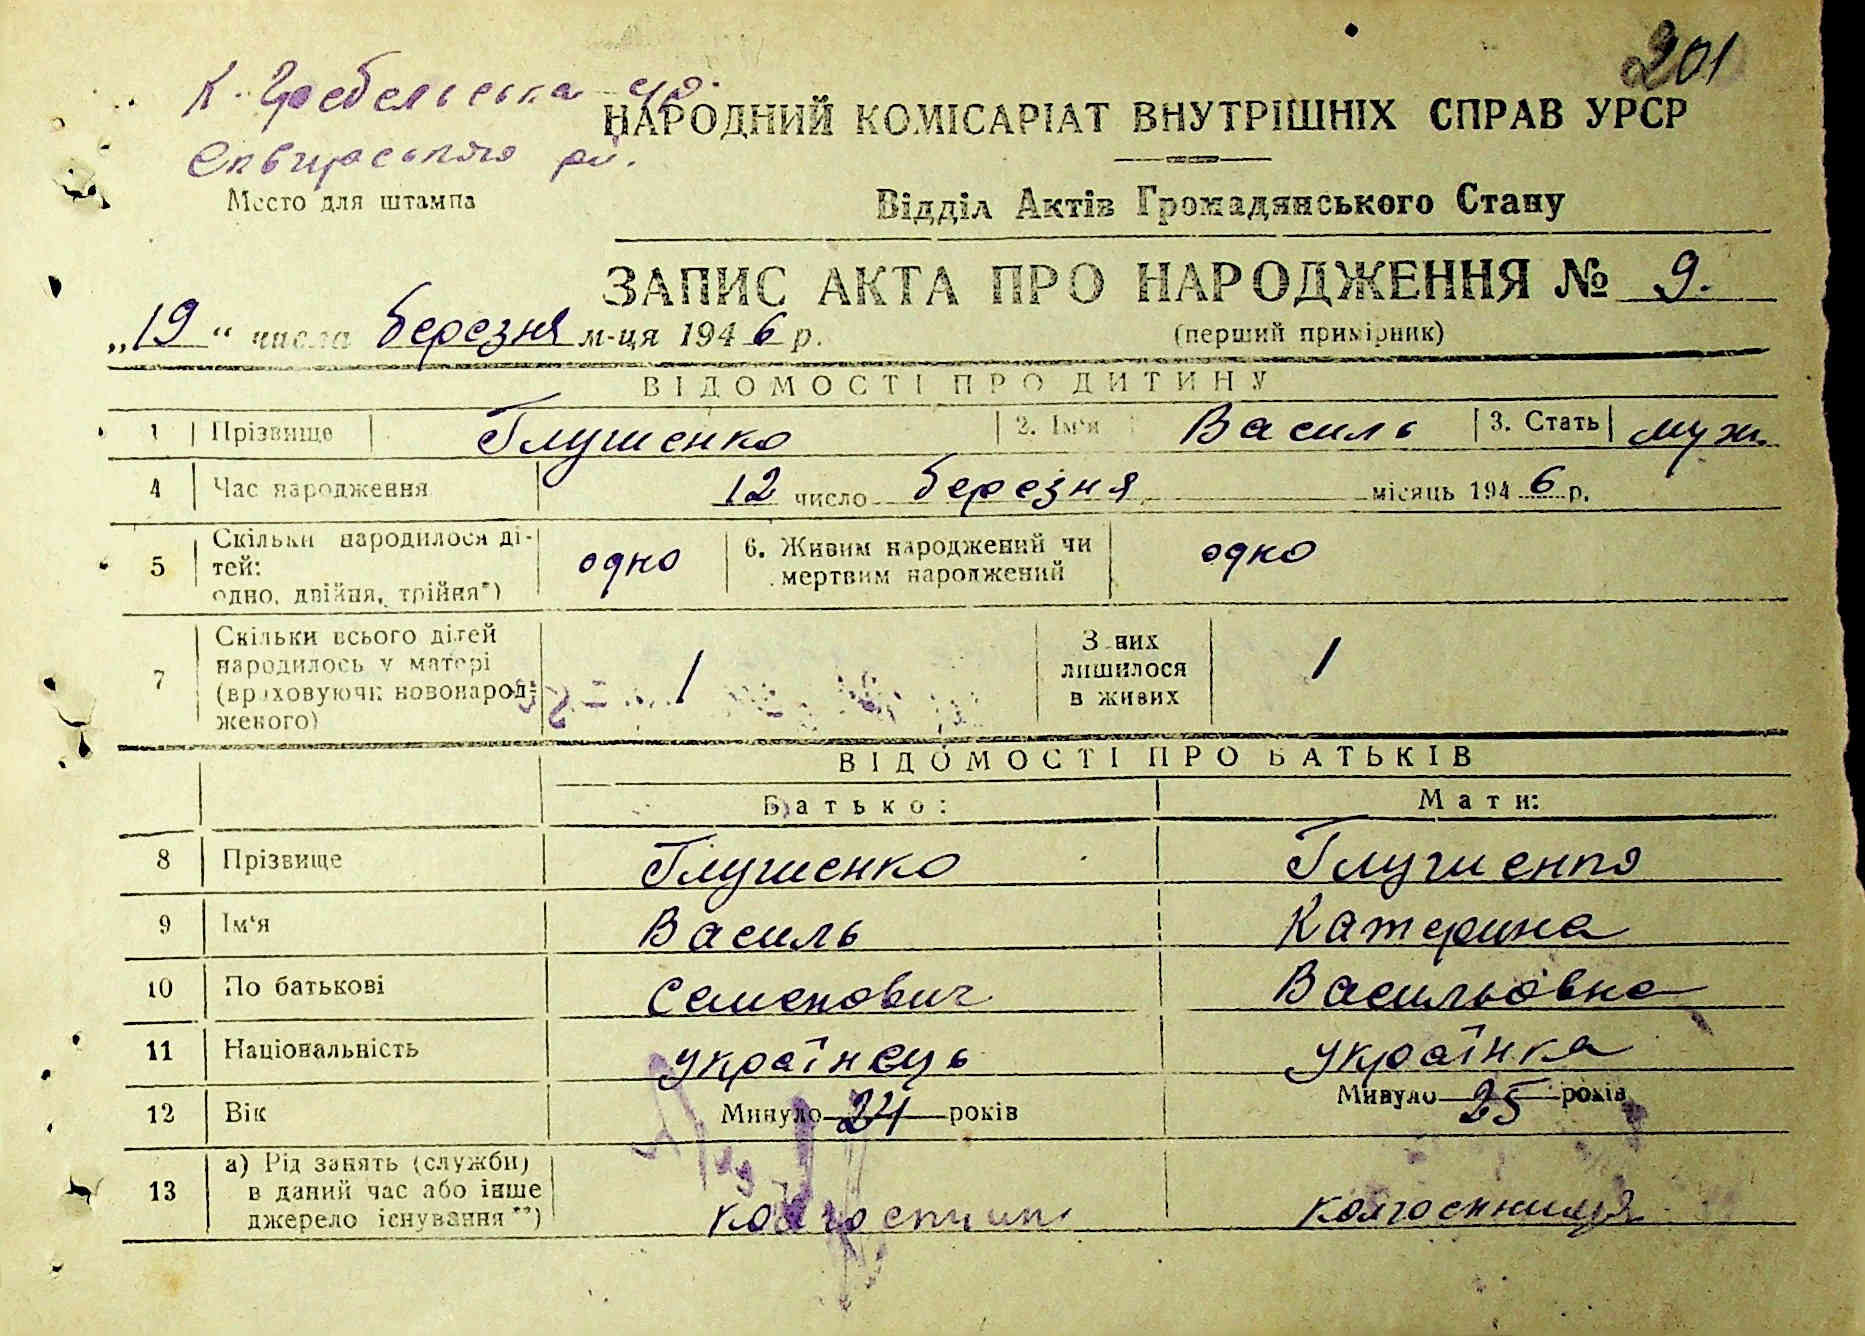 201
К. Гребельська с/р.
НАРОДНИЙ КОМІСАРІАТ ВНУТРІШНІХ СПРАВ УРСР
Сквирського р-н.
Место для штампа
Відділ Актів Громадянського Стану
ЗАПИС АКТА ПРО НАРОДЖЕННЯ № 9.
„19“ числа березня м-ця 1946 р.
(перший примірник)
ВІДОМОСТІ ПРО ДИТИНУ
1 Прізвище Глушенко 2. Ім'я Василь 3. Стать муж.
4 Час народження 12 число березня місяць 1946 р.
5 Скільки народилося ді-
тей:
одно, двійня, трійня*) одно
6. Живим народжений чи
мертвим народжений одно
7 Скільки всього дітей
народилось у матері
(враховуючи новонарод-
женого) 1
З них
лишилося
в живих 1
ВІДОМОСТІ ПРО БАТЬКІВ
Батько: Мати:
8 Прізвище Глушенко Глушенко
9 Ім'я Василь Катерина
10 По батькові Семенович Васильовна
11 Національність українець українка
12 Вік Минуло 24 років Минуло 25 років
13 а) Рід занять (служби)
в даний час або інше
джерело існування**) колгоспник колгоспниця